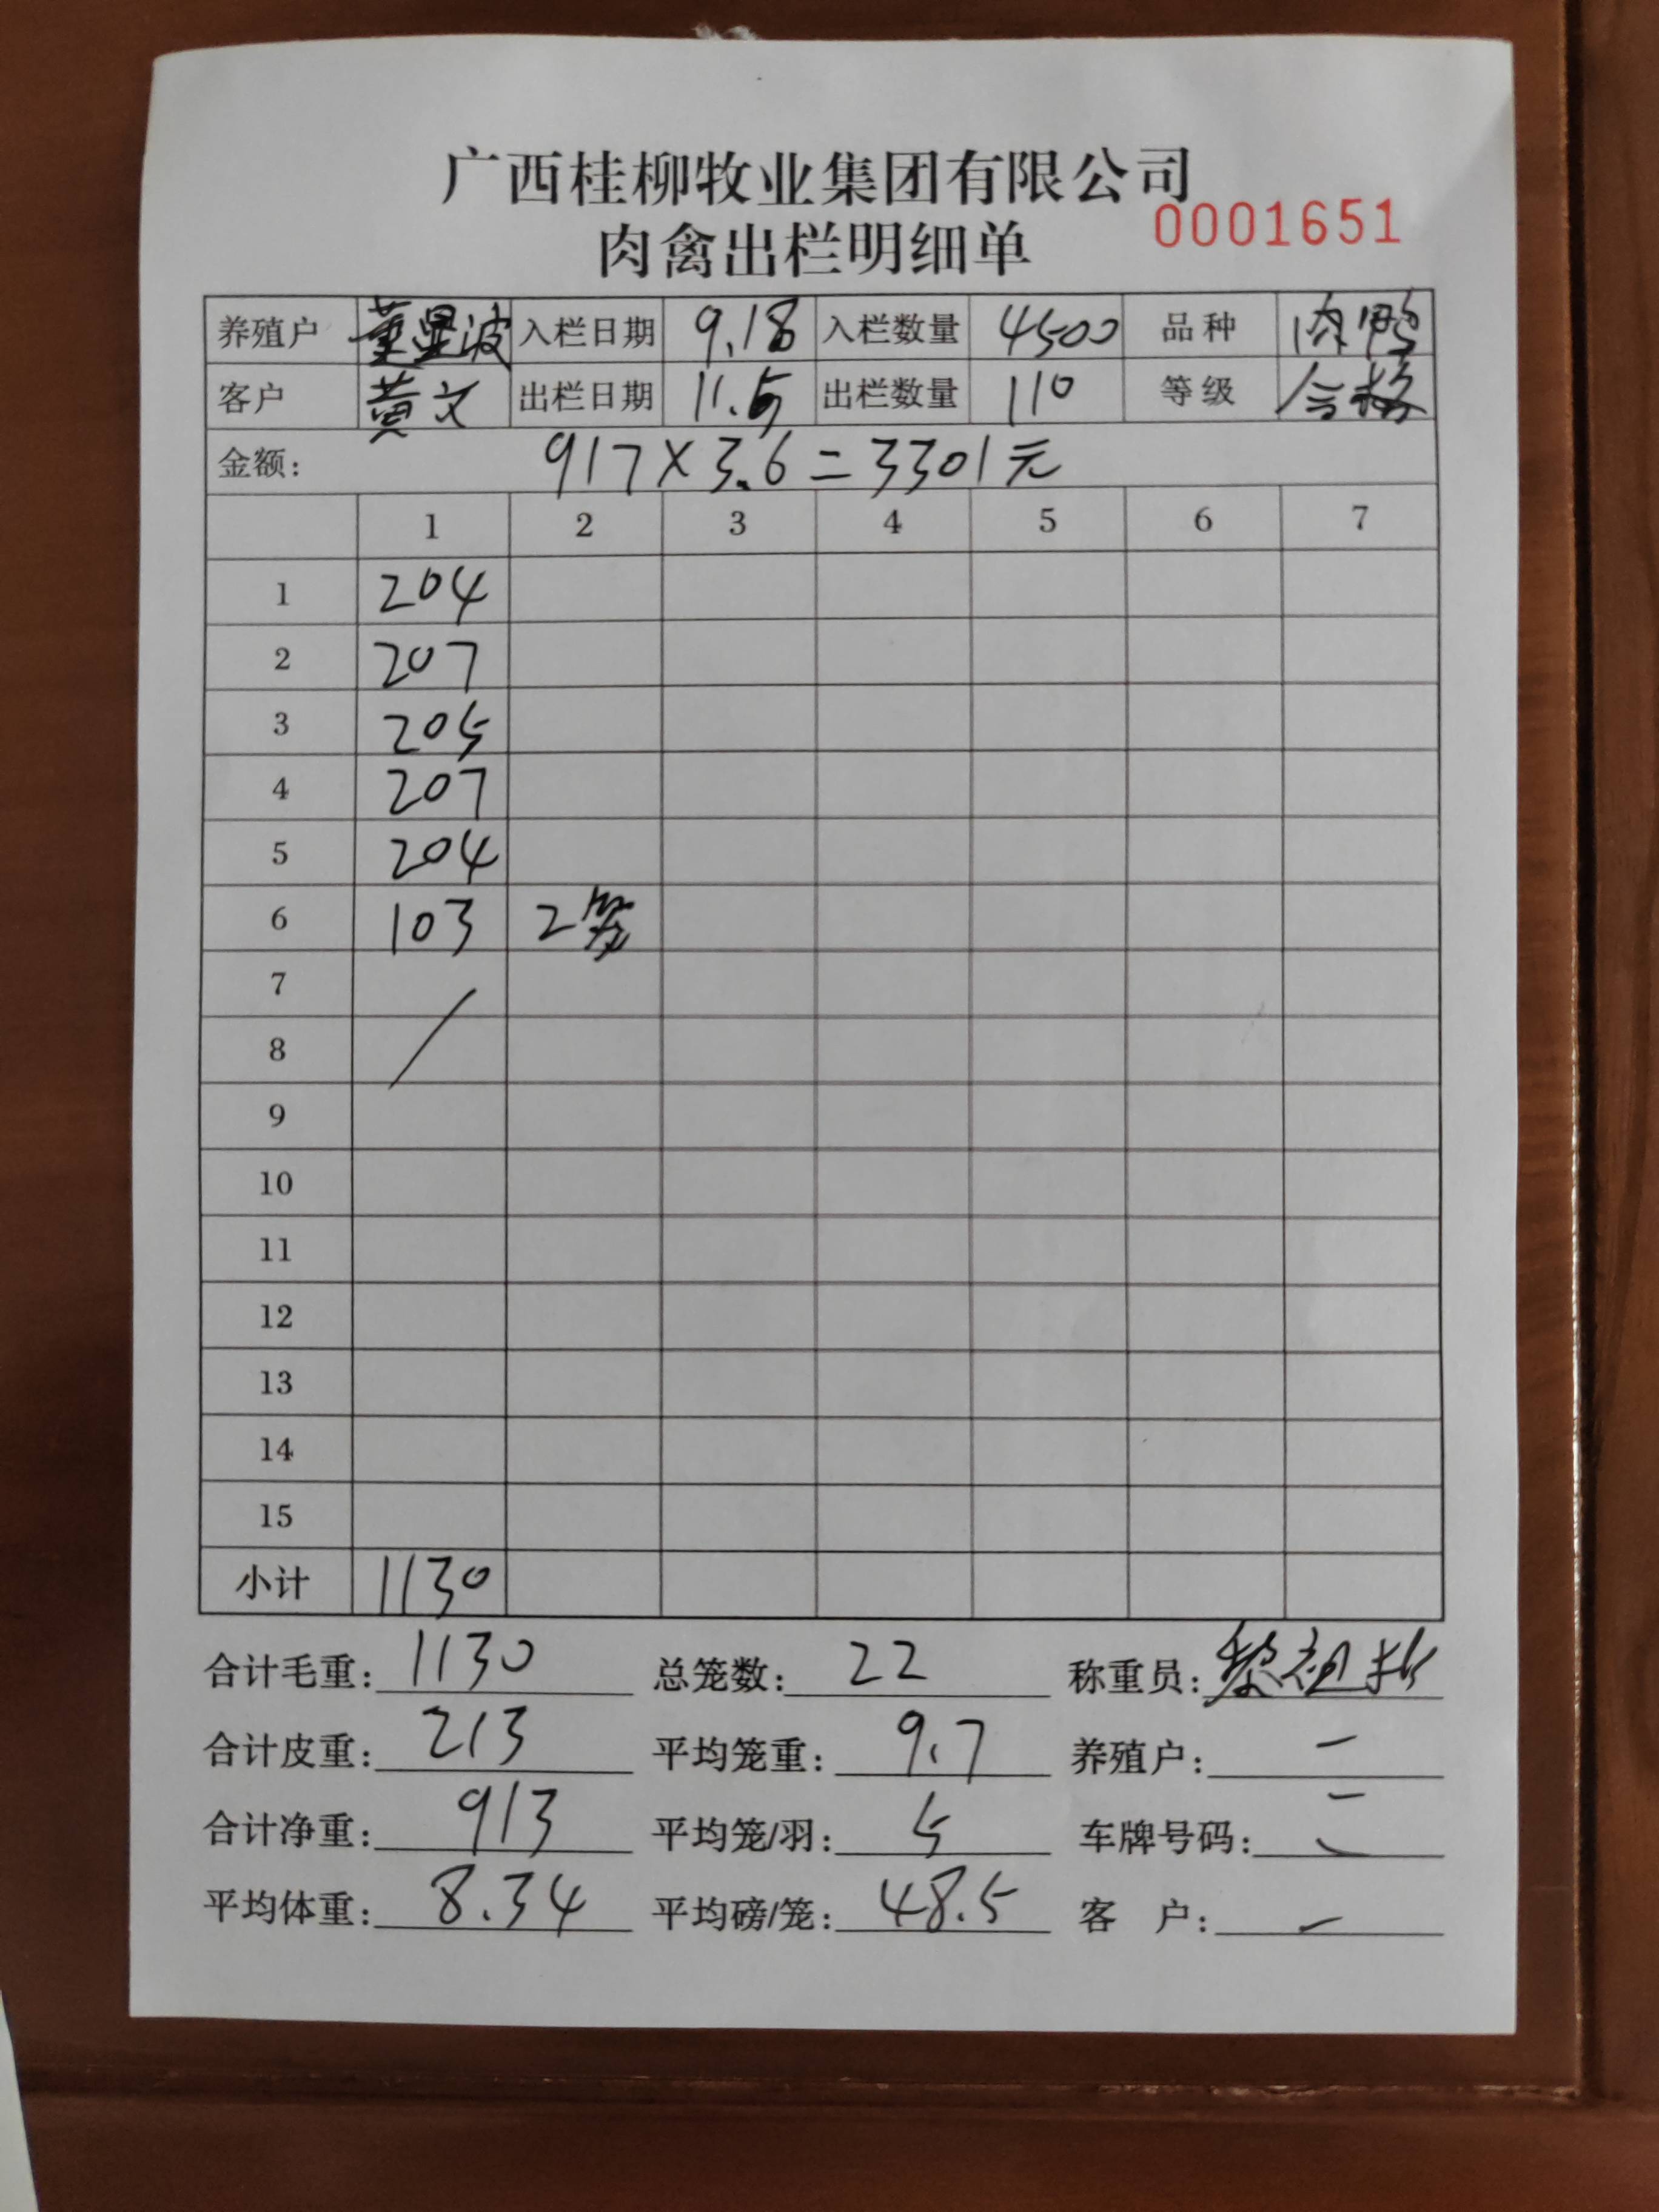 广西桂柳牧业集团有限公司
肉禽出栏明细单 0001651
养殖户 董显波 入栏日期 9.18 入栏数量 4500 品种 肉鸭
客户 黄文 出栏日期 11.5 出栏数量 110 等级 合格
金额: 917×3.6=3301元
1 2 3 4 5 6 7
1 204
2 207
3 205
4 207
5 204
6 103 2笼
7
8
9
10
11
12
13
14
15
小计 1130
合计毛重: 1130 总笼数: 22 称重员:
合计皮重: 213 平均笼重: 9.7 养殖户:
合计净重: 913 平均笼/羽: 5 车牌号码:
平均体重: 8.34 平均磅/笼: 48.5 客 户: